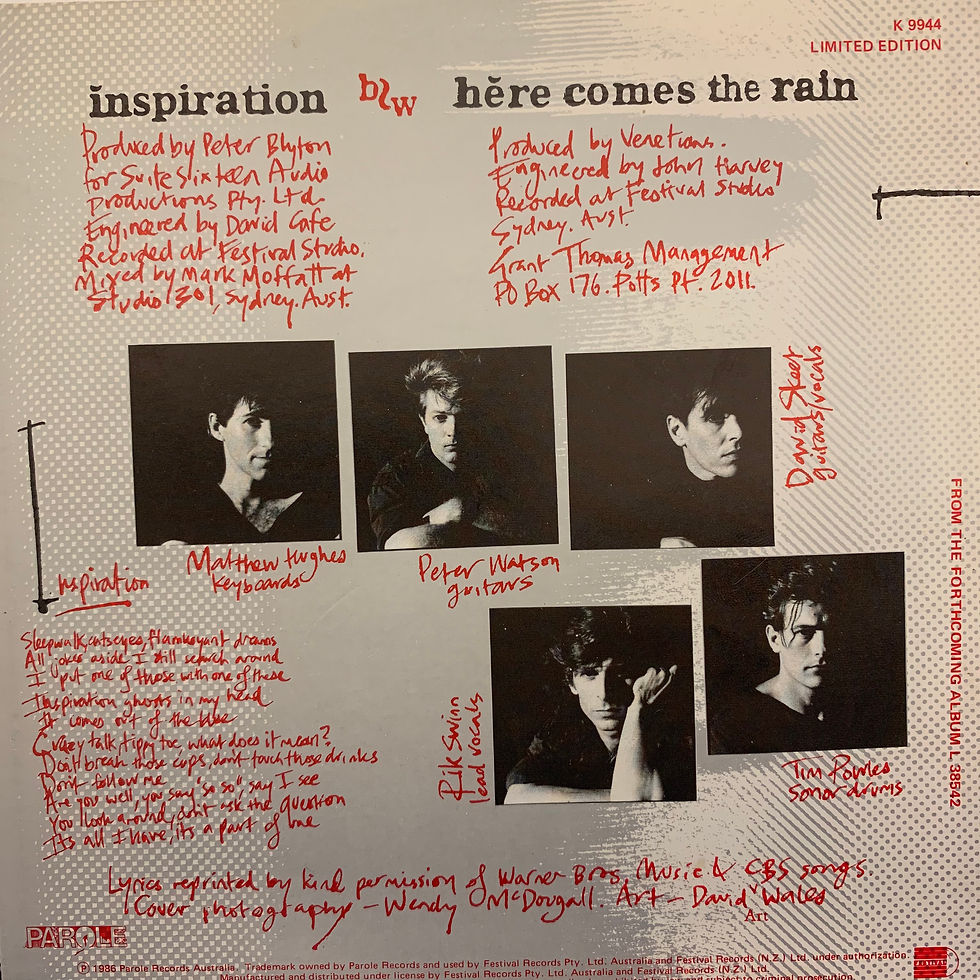 K 9944
LIMITED EDITION
inspiration b/w here comes the rain
Produced by Peter Blyton
for Suite Sixteen Audio
Productions Pty. Ltd.
Engineered by David Cafe
Recorded at Festival Studio.
Mixed by Mark Moffatt at
Studio 301, Sydney. Aust.
Produced by Venetians.
Engineered by John Harvey
Recorded at Festival Studio
Sydney. Aust.
Grant Thomas Management
PO Box 176. Potts Pt. 2011.
David Steer
guitars/vocals
Matthew Hughes
Keyboards
Peter Watson
guitars
Rik Swinn
lead vocals
Tim Powles
Sonor drums
FROM THE FORTHCOMING ALBUM L 38542
Inspiration
Sleepwalk, catseyes, flamboyant dreams
All jokes aside I still search around
I put one of those with one of these
Inspiration ghosts in my head
It comes out of the blue
Crazy talk, tippy toe, what does it mean?
Don't break those cups, don't touch those drinks
Don't follow me
Are you well, you say "so so", say I see
You look around, don't ask the question
It's all I have, it's a part of me
Lyrics reprinted by kind permission of Warner Bros. Music & CBS songs
Cover photography - Wendy McDougall. Art - David Wales
Art
PAROLE
℗ 1986 Parole Records Australia. Trademark owned by Parole Records and used by Festival Records Pty. Ltd. Australia and Festival Records (N.Z.) Ltd. under authorization.
Manufactured and distributed under license by Festival Records Pty. Ltd. Australia and Festival Records (N.Z.) Ltd.
subject to criminal prosecution.